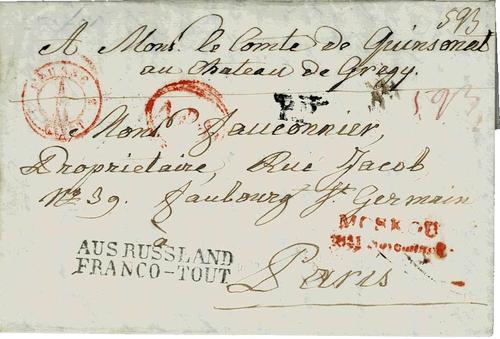 593
A Mons. le Comte de Quinsonat
au Chateau de Gregy.
593
Mons. Fauconnier,
Proprietaire, Rue Jacob
No. 39. Faubourg St. Germain
a
MOSKOU
AUS RUSSLAND
FRANCO-TOUT
Paris